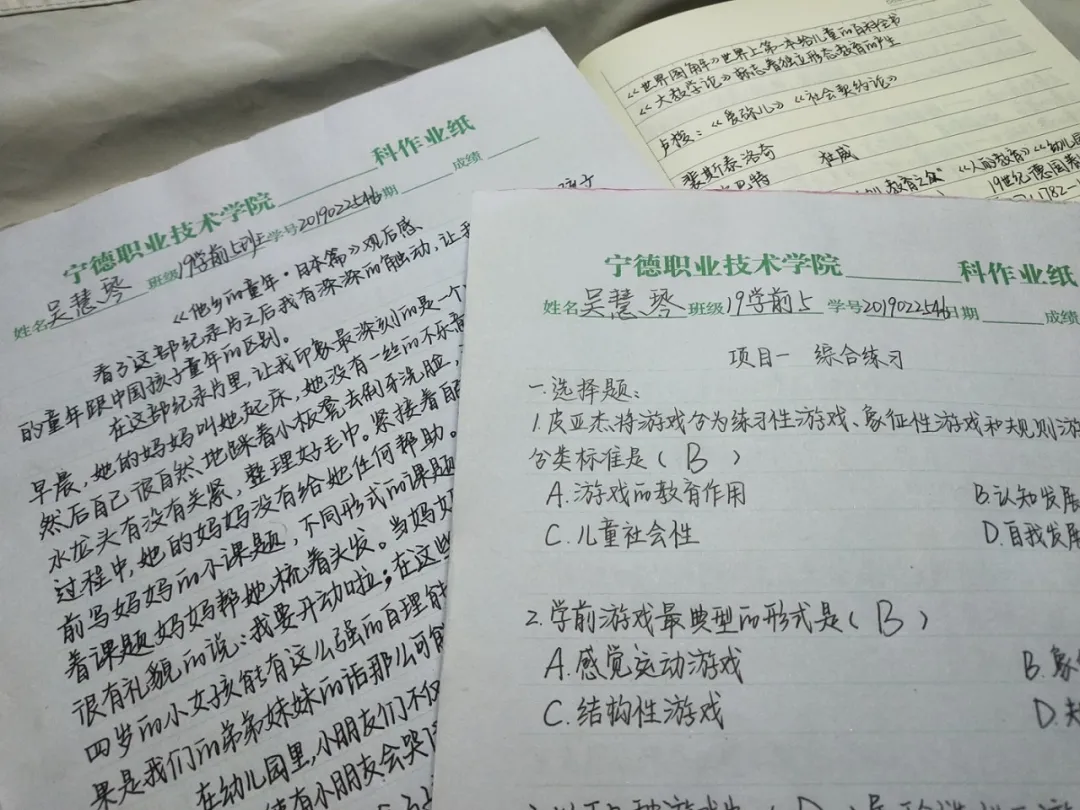 宁德职业技术学院______科作业纸
姓名 吴慧琴 班级 19学前5班 学号 2019022546 期______ 成绩______
《他乡的童年·日本篇》观后感
看了这部纪录片之后我有深深的触动，让
的童年跟中国孩子童年的区别。
在这部纪录片里，让我印象最深刻的是一个
早晨，她的妈妈叫她起床，她没有一丝的不乐
然后自己很自然地踩着小板凳去刷牙洗脸，
水龙头有没有关紧，整理好毛巾。紧接着
过程中，她的妈妈没有给她任何帮助。
前写妈妈的小课题，不同形式的课题
着课题妈妈帮她梳着头发。当妈妈
很有礼貌的说：我要开动啦；在这
四岁的小女孩能有这么强的自理能
果是我们的弟弟妹妹的话那么可能
在幼儿园里，小朋友们不仅
有小朋友会哭
《世界图解》世界上第一本给儿童的百科全书
《大教学论》标志着独立形态教育的产生
卢梭：《爱弥儿》《社会契约论》
裴斯泰洛奇 杜威
巴特 教育之父 《人的教育》《幼儿园
19世纪德国
1782-
宁德职业技术学院______科作业纸
姓名 吴慧琴 班级 19学前5 学号 2019022546 日期______ 成绩
项目一 综合练习
一.选择题：
1.皮亚杰将游戏分为练习性游戏、象征性游戏和规则游
分类标准是（ B ）
A.游戏的教育作用 B.认知发展
C.儿童社会性 D.自我发展
2.学前游戏最典型的形式是（ B ）
A.感觉运动游戏 B.象
C.结构性游戏 D.